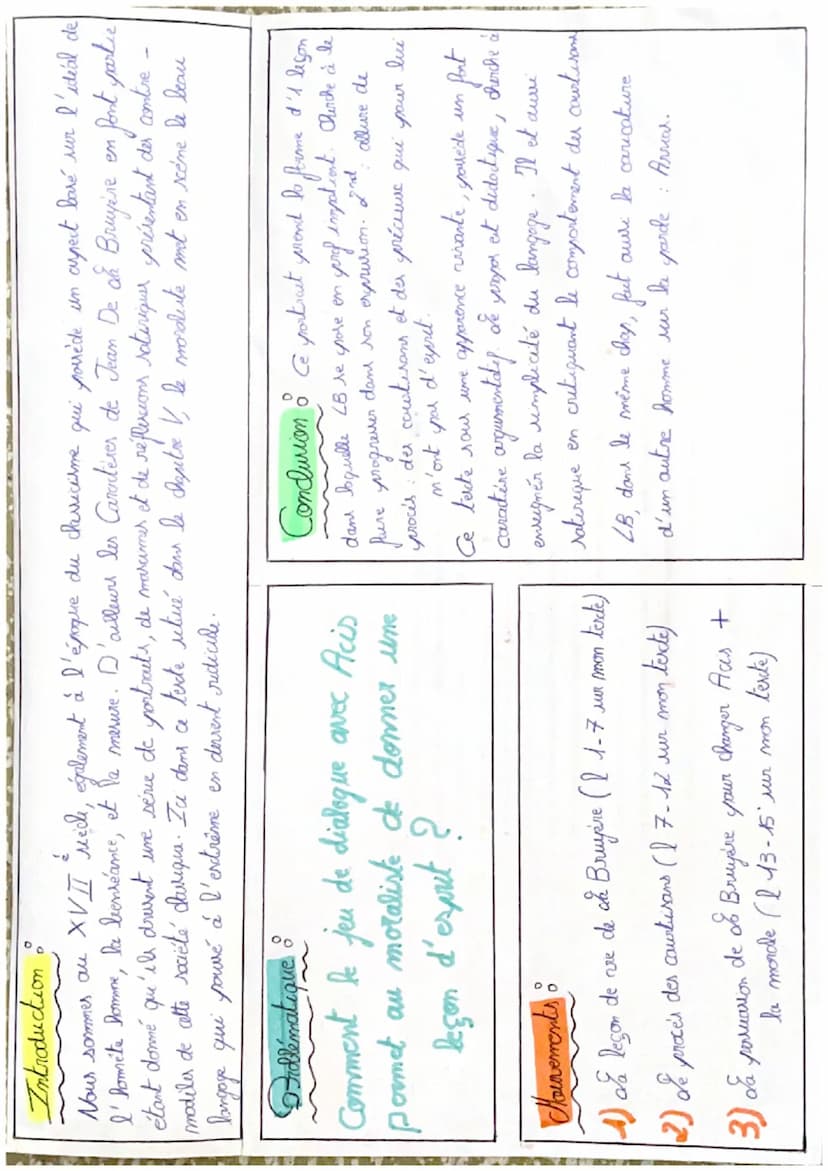 Introduction :
Nous sommes au XVII è siècle, également à l'époque du classicisme qui possède un aspect basé sur l'idéal de
l'honnête homme, la bienséance, et la mesure. D'ailleurs les Caractères de Jean De La Bruyère en font partie
étant donné qu'ils dressent une série de portraits, de maximes et de réflexions satiriques présentant des contre-
modèles de cette société classique. Ici dans ce texte situé dans le chapitre V, le moraliste met en scène le beau
langage qui poussé à l'extrême en devient ridicule.
Problématique :
Comment le jeu de dialogue avec Acis
permet au moraliste de donner une
leçon d'esprit ?
Mouvements :
1) La leçon de vie de La Bruyère (l 1-7 sur mon texte)
2) Le procès des courtisans (l 7-12 sur mon texte)
3) La persuasion de La Bruyère pour changer Acis +
la morale (l 13-15 sur mon texte)
Conclusion :
Ce portrait prend la forme d'1 leçon
dans laquelle LB se pose en prof impatient. Cherche à le
faire progresser dans son expression. 2nd : allure de
procès : des courtisans et des précieux qui pour lui
n'ont pas d'esprit.
Ce texte sous une apparence riante, possède un fort
caractère argumentatif. Le propos et didactique, cherche à
enseigner la simplicité du langage. Il et aussi
satirique en critiquant le comportement des courtisans
LB, dans le même chap, fait aussi la caricature
d'un autre homme sur la parole : Arrias.